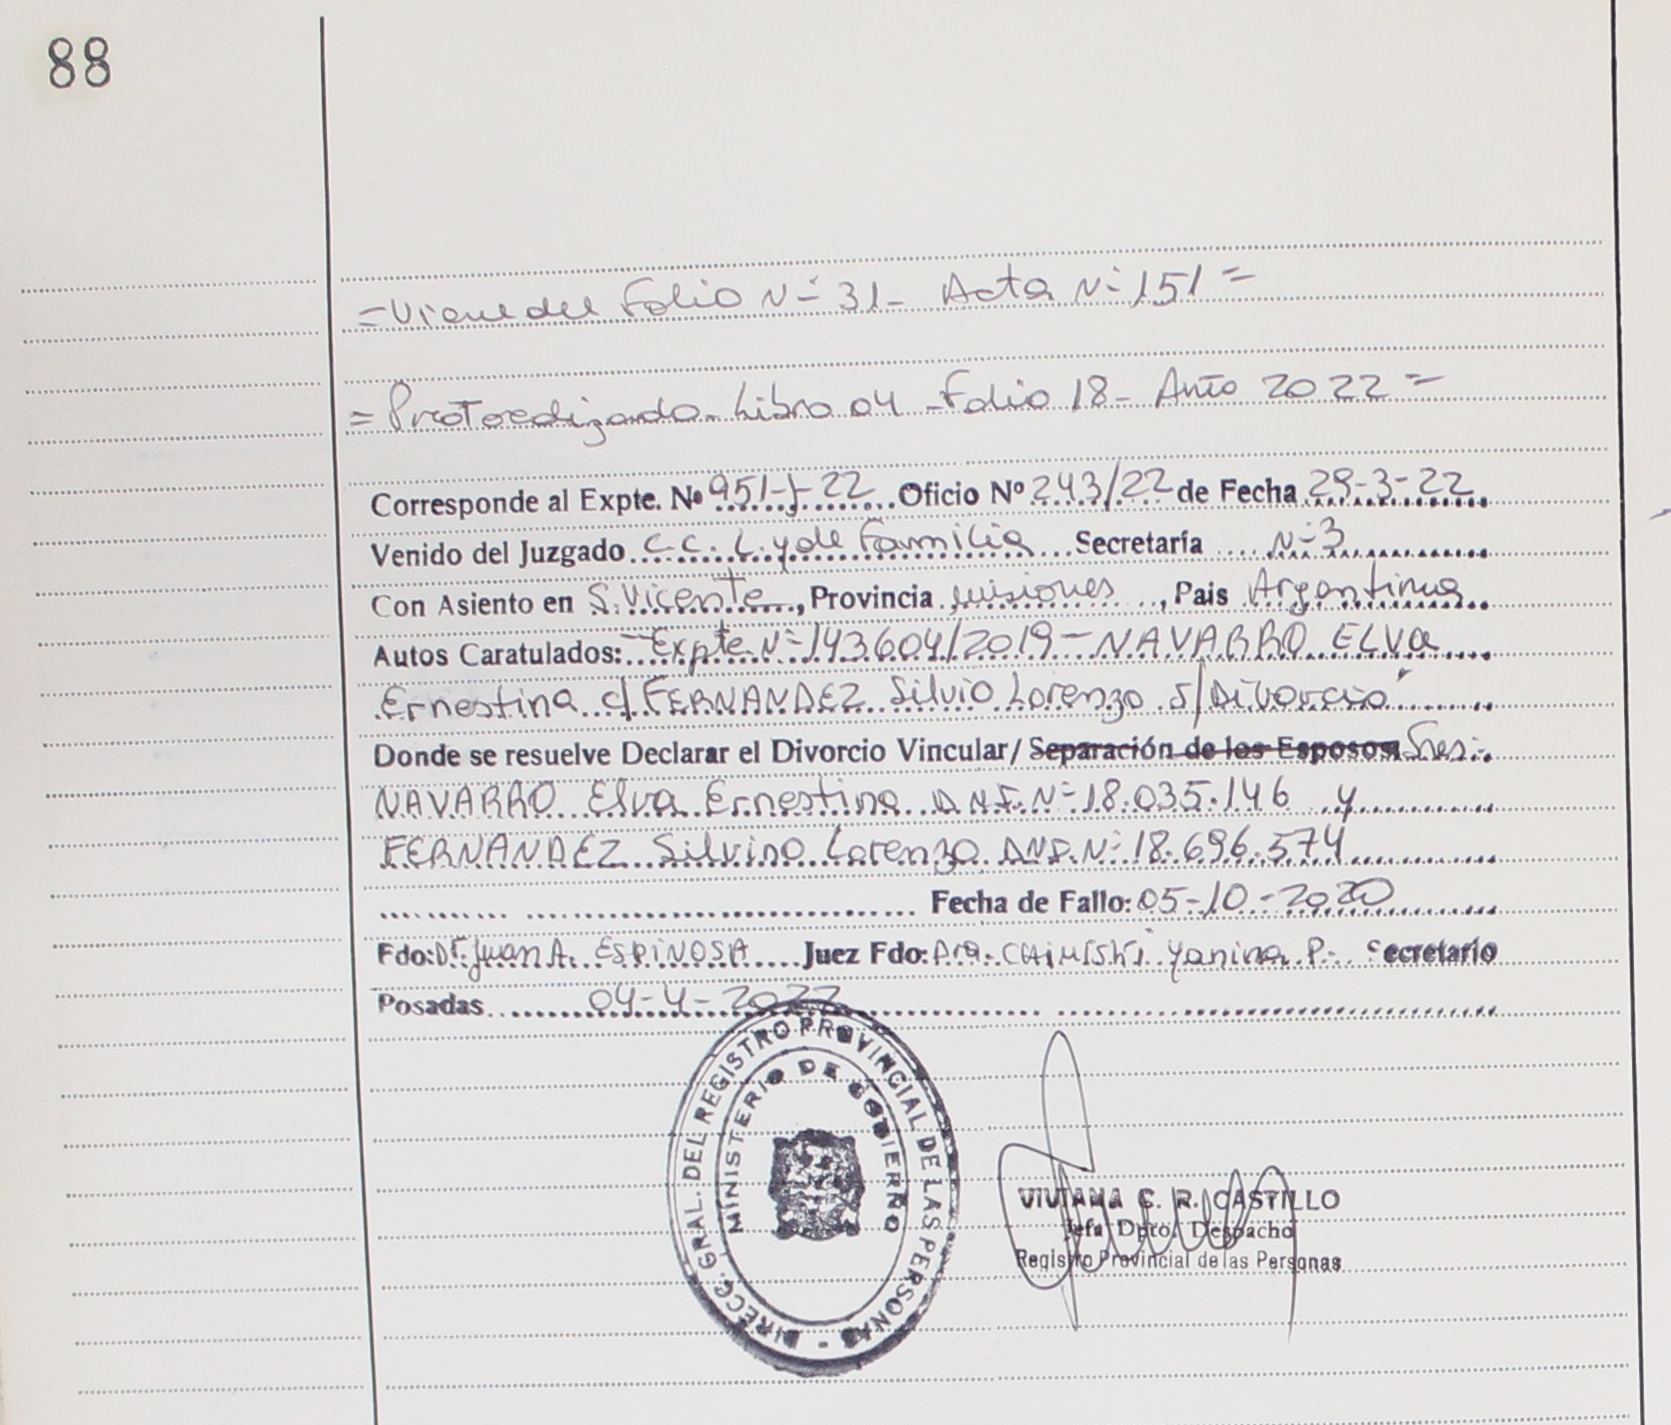 88
=Viene del Folio Nº 31- Acta Nº 151=
=Protocolizado- Libro 04 -Folio 18- Año 2022=
Corresponde al Expte. Nº 951-J-22 Oficio Nº 243/22 de Fecha 28-3-22
Venido del Juzgado C.C. L. y de Familia Secretaría Nº 3
Con Asiento en S. Vicente, Provincia Misiones, Pais Argentina
Autos Caratulados: "Expte Nº 143604/2019 - NAVARRO ELVa
Ernestina c/ FERNANDEZ Silvio Lorenzo s/Divorcio"
Donde se resuelve Declarar el Divorcio Vincular/ Separación de los Esposos Sres:
NAVARRO Elva Ernestina D.N.I. Nº 18.035.146 y
FERNANDEZ Silvino Lorenzo DNI. Nº 18.696.574
Fecha de Fallo: 05-10-2020
Fdo: Dr. Juan A. ESPINOSA Juez Fdo: Dra. Yanina P. Secretario
Posadas 04-4-2022
DIRECC. GRAL. DEL REGISTRO PROVINCIAL DE LAS PERSONAS -
MINISTERIO DE GOBIERNO
VIVIANA C. R. CASTILLO
Jefa Dpto. Despacho
Registro Provincial de las Personas